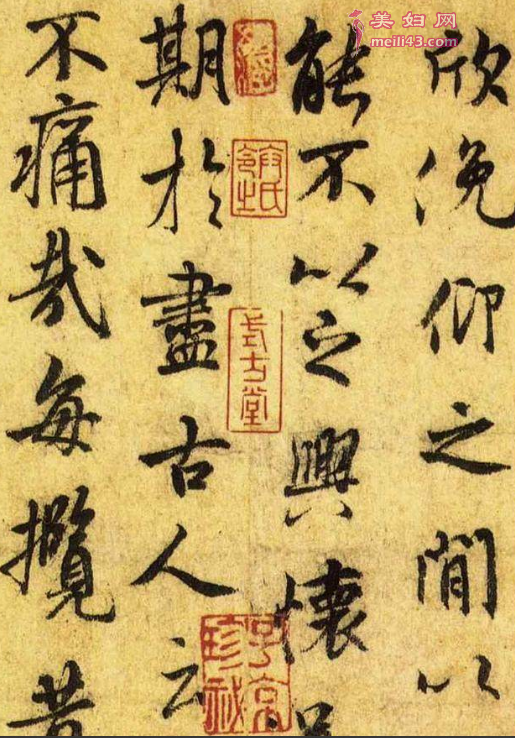 美妇网
meili43.com
欣俛仰之間以
能不以之興懷
期於盡古人云
不痛哉每攬昔